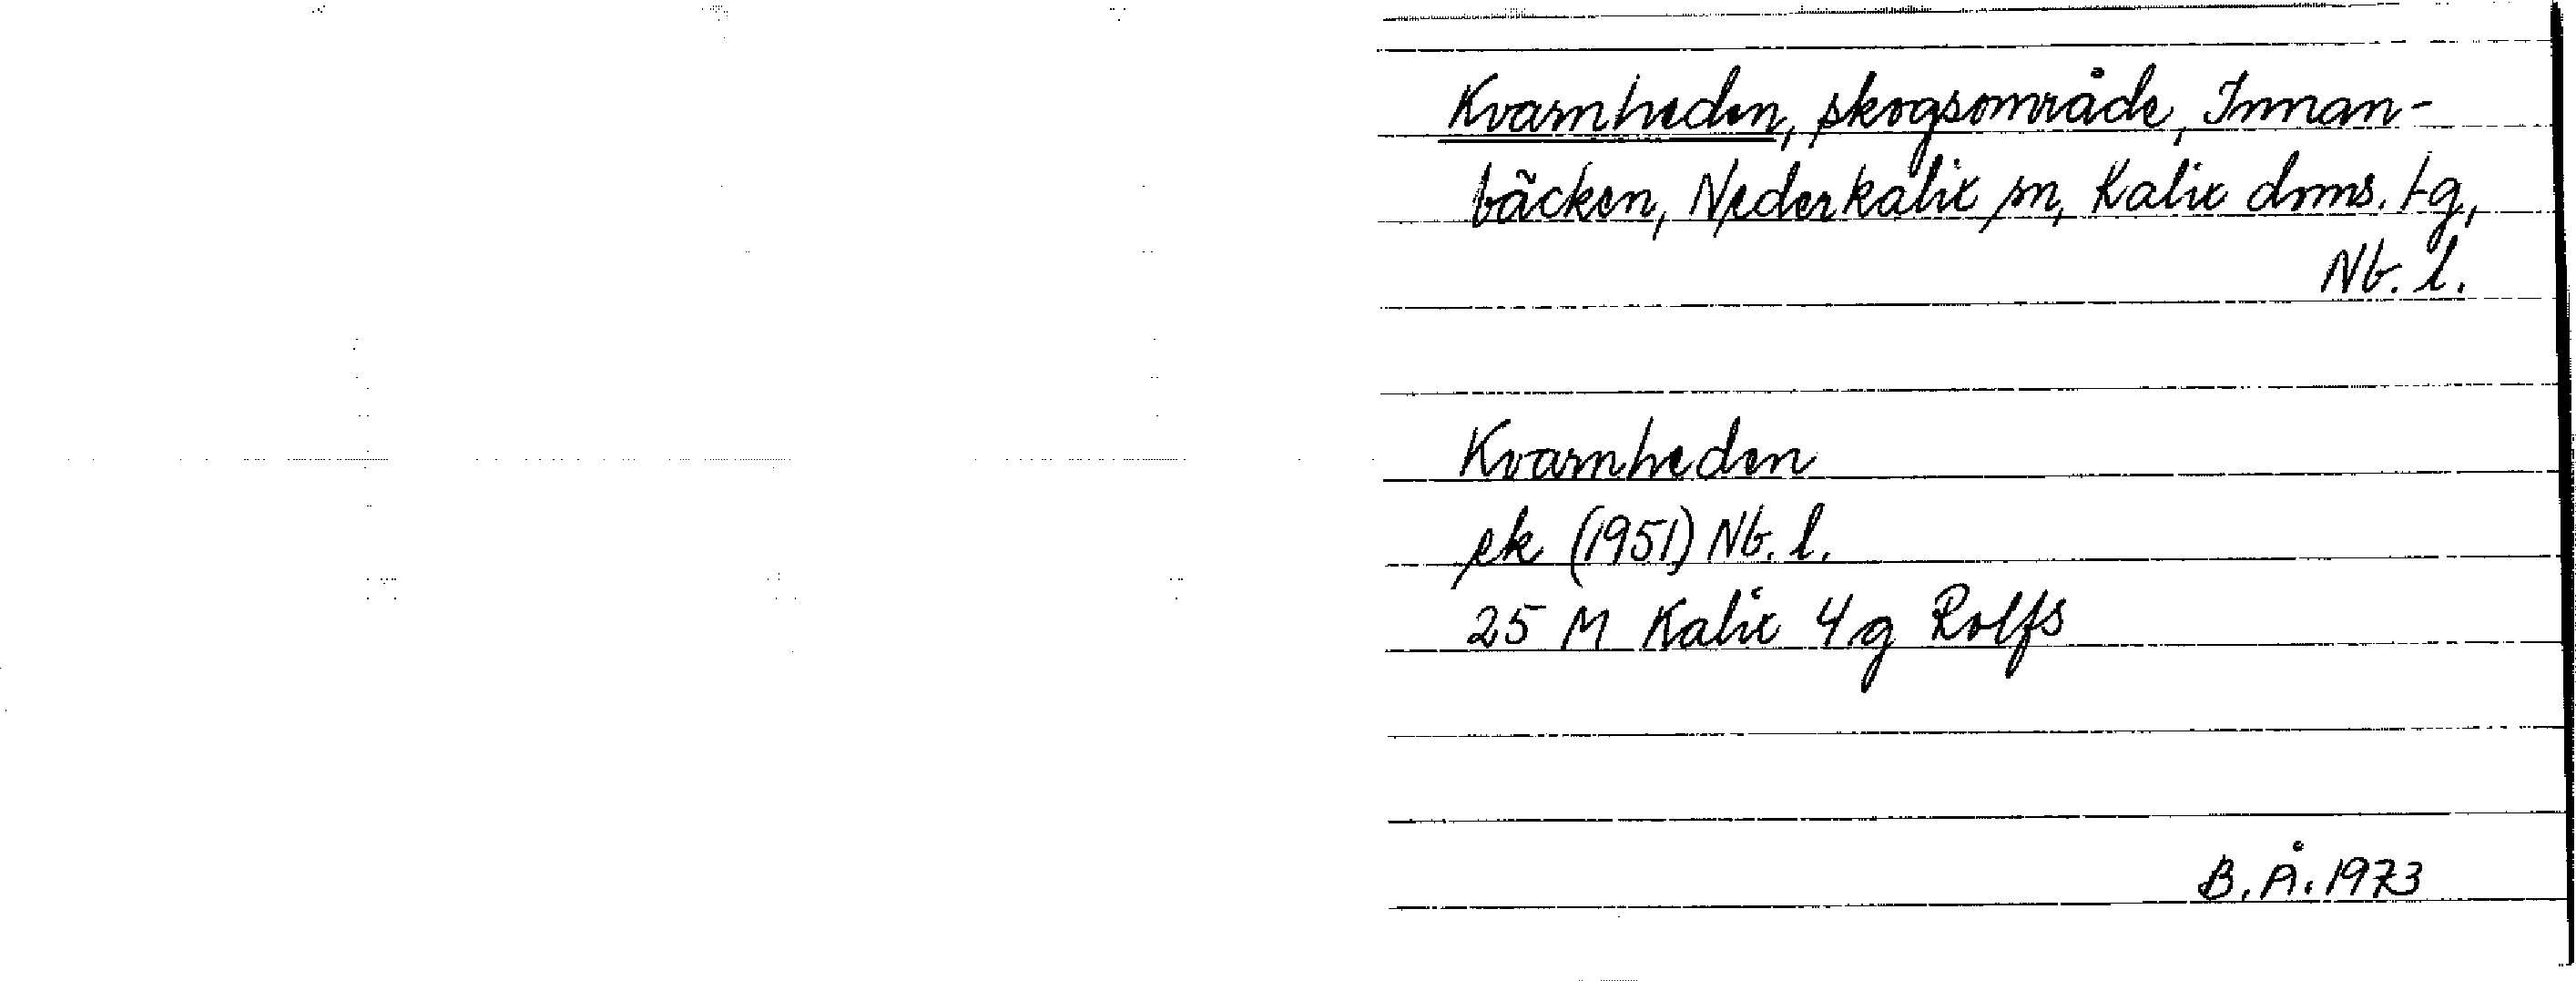 Kvarnheden, skogsområde, Innan-
bäcken, Nederkalix sn, Kalix doms. tg,
Nb. l.
Kvarnheden
ek (1951) Nb. l.
25 M Kalix 4 g Rolfs
B. Å. 1973